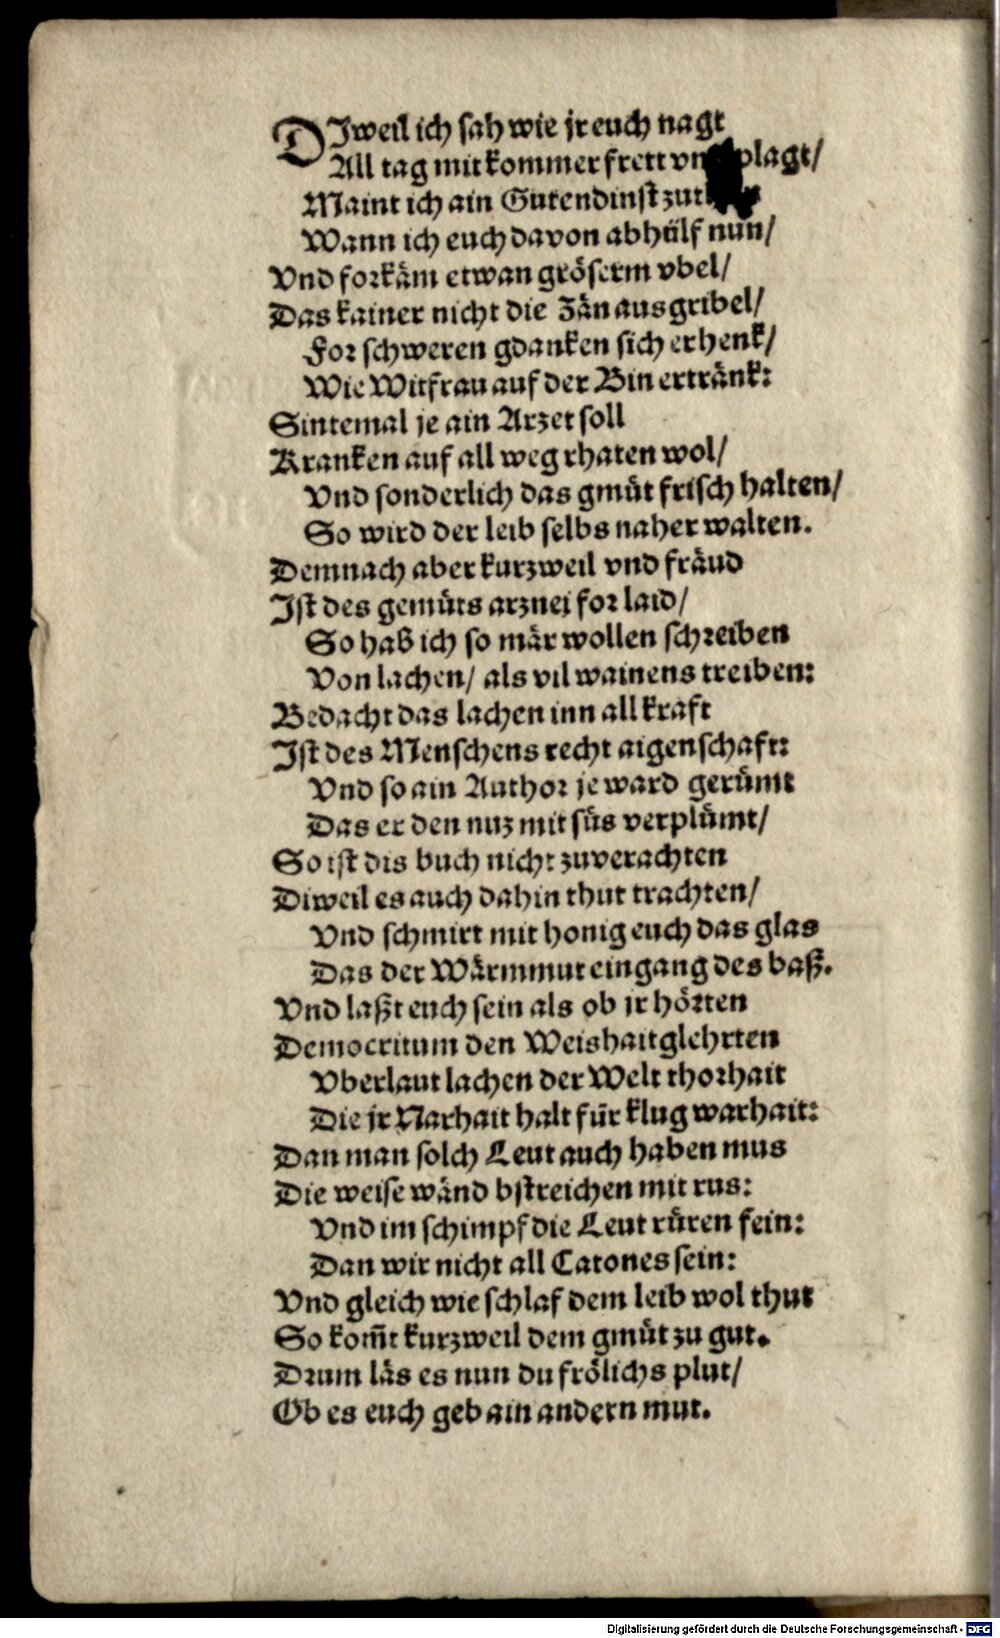 DJweil ich sah wie jr euch nagt
All tag mit kommer frett vn plagt/
Maint ich ain Gutendinst
Wann ich euch davon abhülf nun/
Vnd forkäm etwan gröserm vbel/
Das kainer nicht die Zän ausgribel/
For schweren gdanken sich erhenk/
Wie Witfrau auf der Bin ertränk:
Sintemal je ain Arzet soll
Kranken auf all weg rhaten wol/
Vnd sonderlich das gmüt frisch halten/
So wird der leib selbs naher walten.
Demnach aber kurzweil vnd fräud
Jst des gemüts arznej for laid/
So hab ich so mär wollen schreiben
Von lachen/ als vil wainens treiben:
Bedacht das lachen inn all kraft
Jst des Menschens recht aigenschaft:
Vnd so ain Author je ward gerümt
Das er den nuz mit süs verplümt/
So ist dis buch nicht zuverachten
Diweil es auch dahin thut trachten/
Vnd schmirt mit honig euch das glas
Das der Wärmmut eingang des baß.
Vnd laßt euch sein als ob jr hörten
Democritum den Weishaitglehrten
Vberlaut lachen der Welt thorhait
Die jr Narhait halt für klug warhait:
Dan man solch Leut auch haben mus
Die weise wänd bstreichen mit rus:
Vnd im schimpf die Leut rüren fein:
Dan wir nicht all Catones sein:
Vnd gleich wie schlaf dem leib wol thut
So kom̄t kurzweil dem gmüt zu gut.
Drum läs es nun du frölichs plut/
Ob es euch geb ain andern mut.
Digitalisierung gefördert durch die Deutsche Forschungsgemeinschaft - DFG